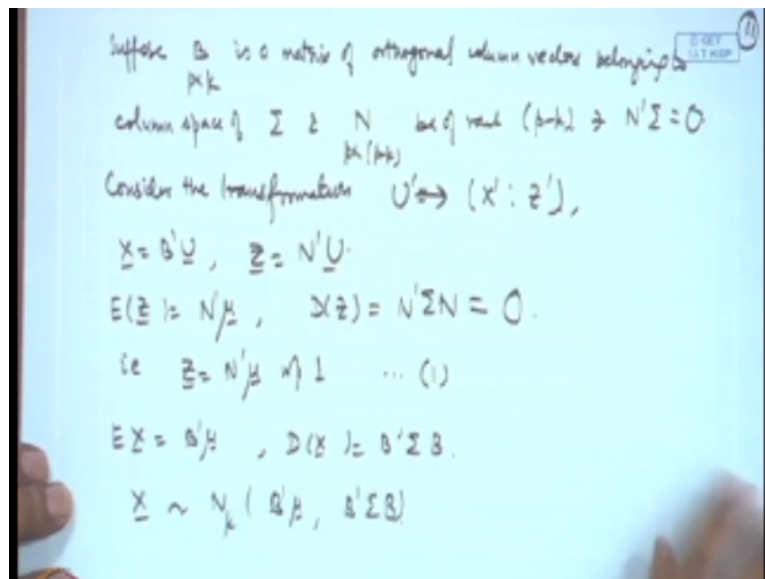 Suppose B is a matrix of orthogonal column vectors belonging to
p×k
column space of Σ & N be of rank (p-k) ∋ N'Σ = 0
p×(p-k)
Consider the transformation U' ↔ (X' : Z'),
X = B'U , Z = N'U.
E(Z) = N'μ , D(Z) = N'ΣN = 0.
ie Z = N'μ w.p. 1 ... (1)
EX = B'μ , D(X) = B'ΣB.
X ~ N_k (B'μ, B'ΣB)
11
© CET
I.I.T. KGP